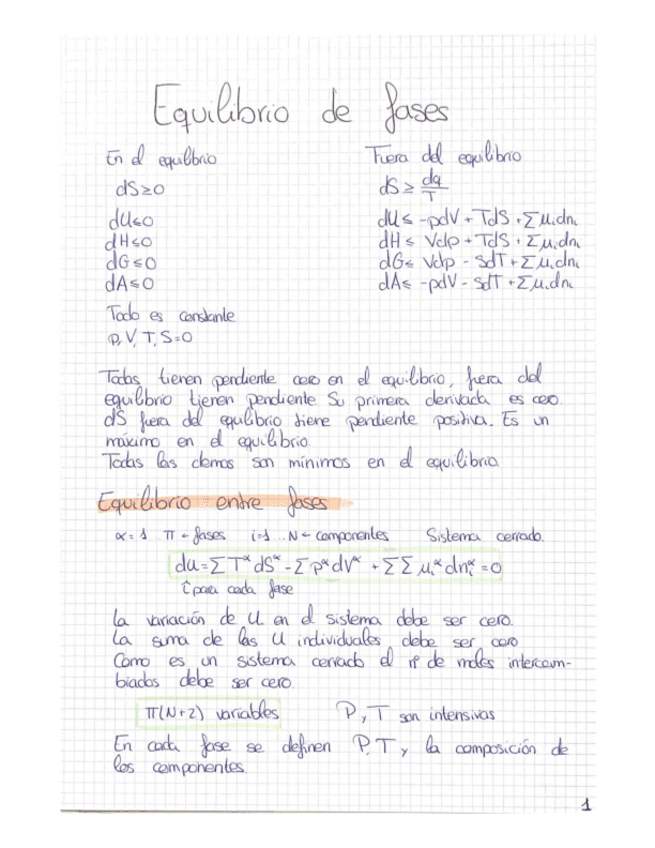 Equilibrio de fases
En el equilibrio
dS≥0
dU≤0
dH≤0
dG≤0
dA≤0
Todo es constante
P,V,T,S=0
Fuera del equilibrio
dS ≥ dq/T
dU ≤ -pdV + TdS + Σμidni
dH ≤ Vdp + TdS + Σμidni
dG ≤ Vdp - SdT + Σμidni
dA ≤ -pdV - SdT + Σμidni
Todas tienen pendiente cero en el equilibrio, fuera del
equilibrio tienen pendiente Su primera derivada es cero.
dS fuera del equilibrio tiene pendiente positiva. Es un
máximo en el equilibrio
Todas las demas son mínimos en el equilibrio
Equilibrio entre fases
α=1...π ← fases i=1...N ← componentes Sistema cerrado.
du=ΣTᵅdSᵅ - ΣpᵅdVᵅ + ΣΣμiᵅdniᵅ=0
↑para cada fase
La variación de U en el sistema debe ser cero.
La suma de las U individuales debe ser cero
Como es un sistema cerrado el nº de moles intercam-
biados debe ser cero.
π(N+2) variables P y T son intensivas
En cada fase se definen P,T y la composición de
los componentes.
1